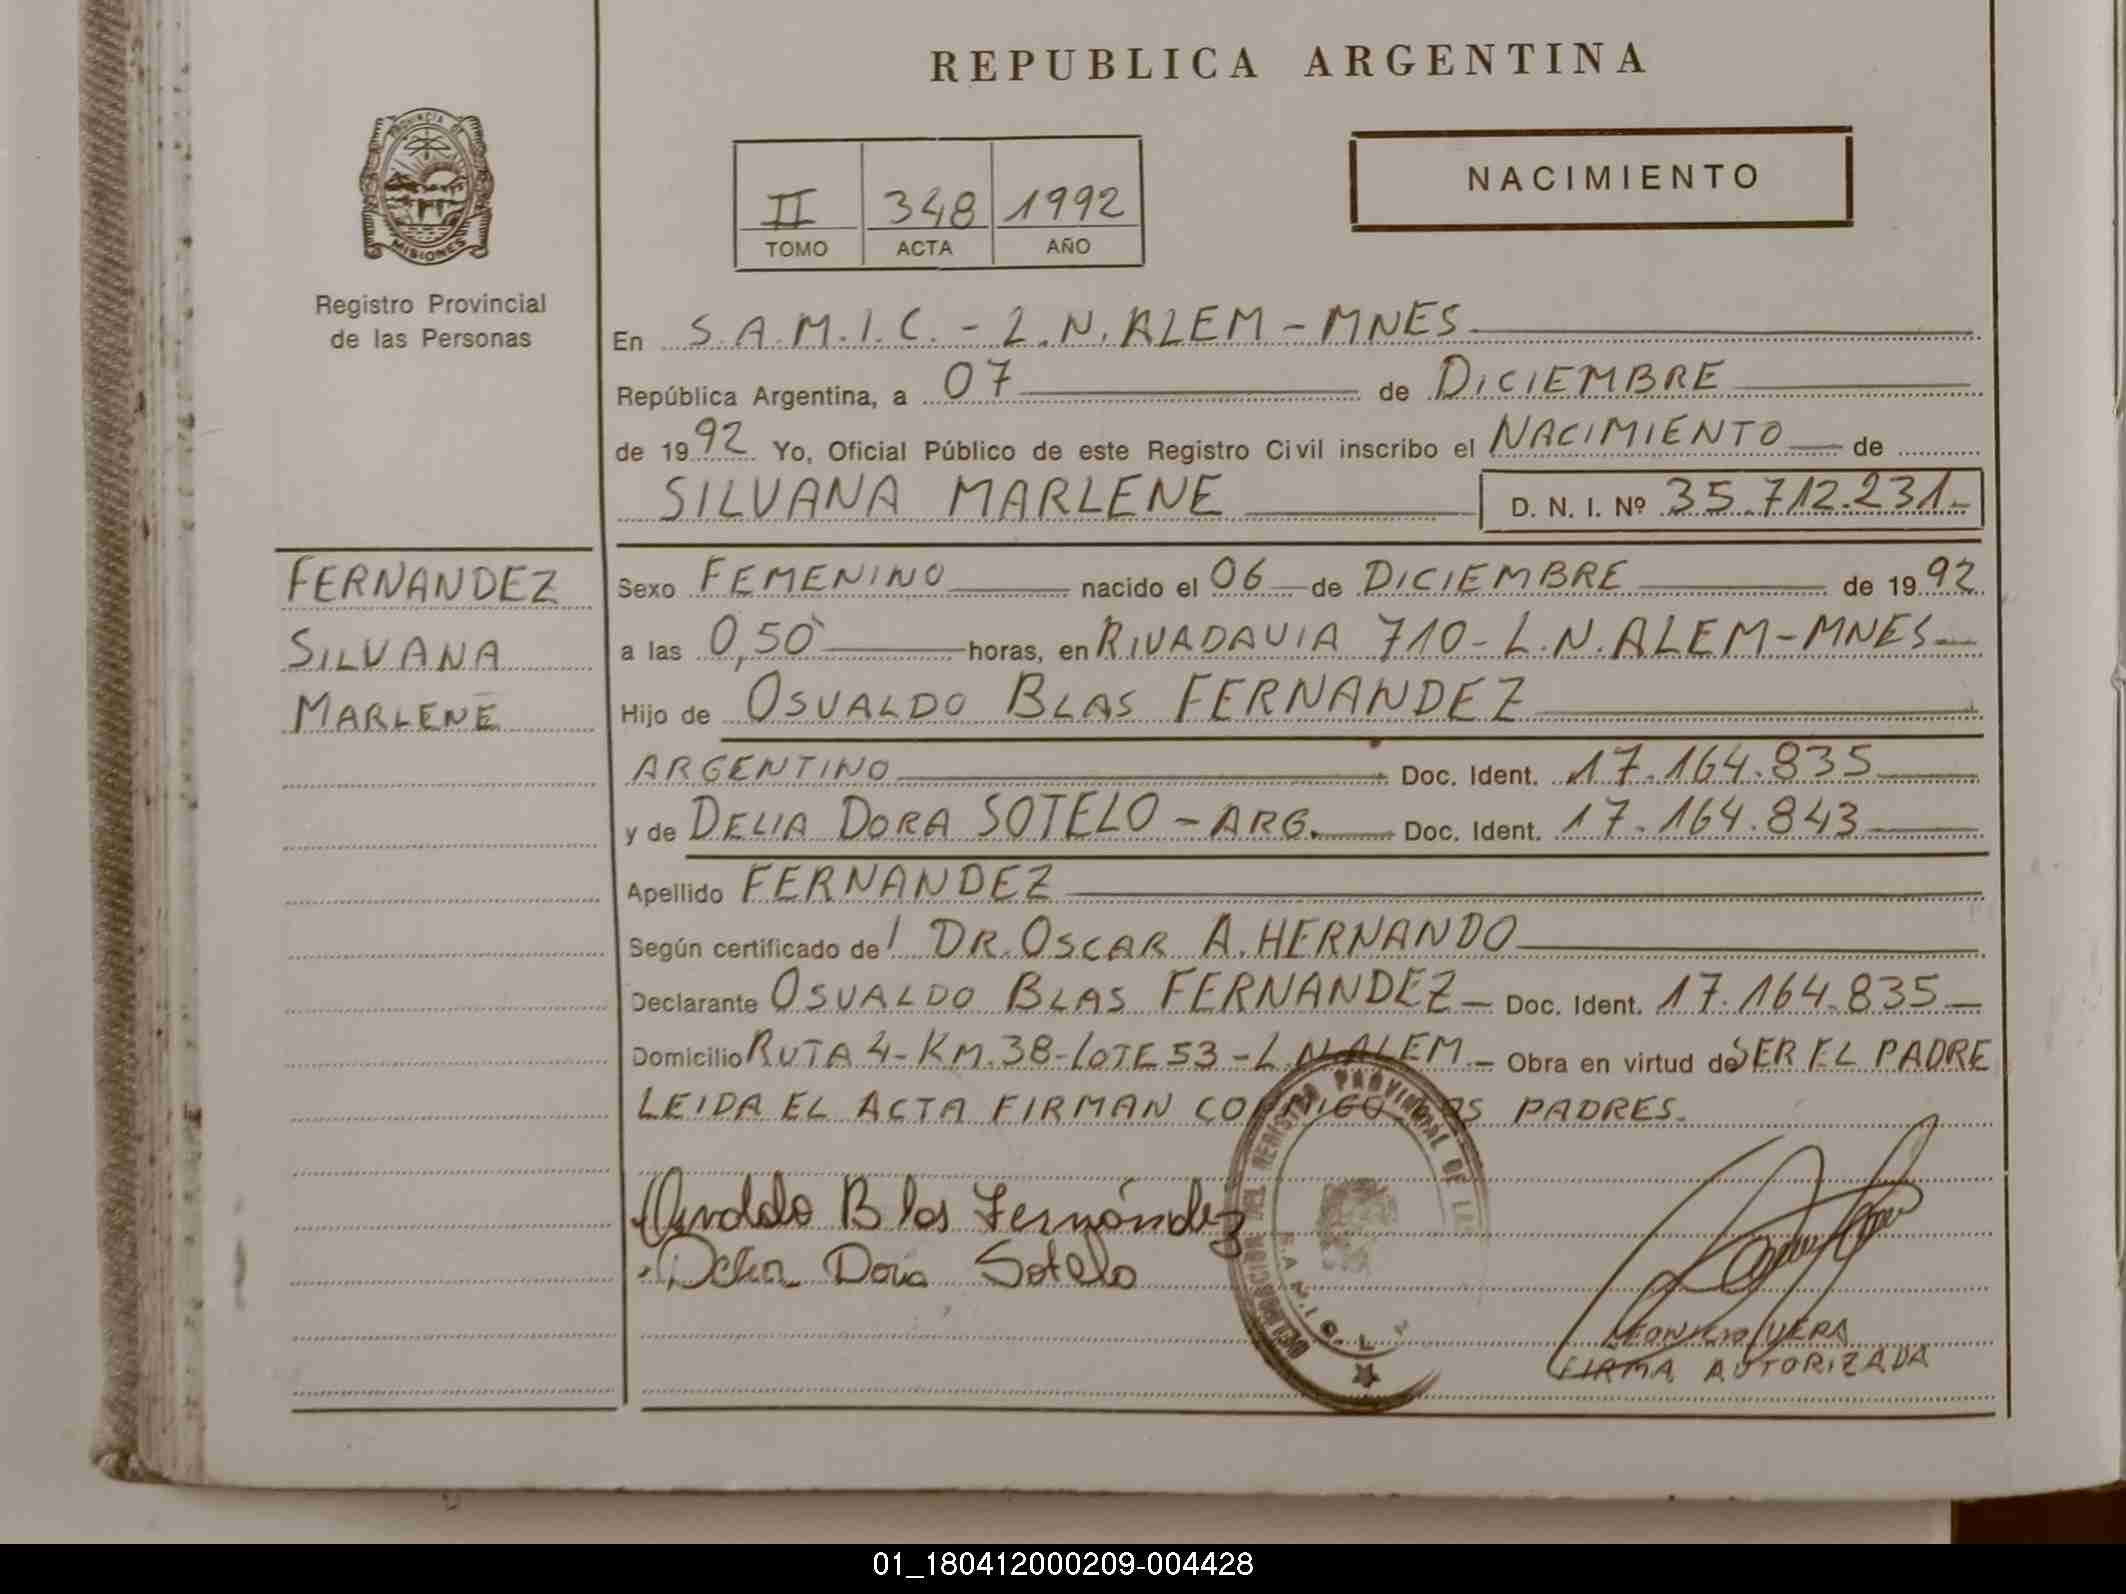 REPUBLICA ARGENTINA
PROVINCIA DE
MISIONES
Registro Provincial
de las Personas
NACIMIENTO
II 348 1992
TOMO ACTA AÑO
En S.A.M.I.C. - L.N. ALEM - MNES
República Argentina, a 07 de DICIEMBRE
de 1992 Yo, Oficial Público de este Registro Civil inscribo el NACIMIENTO de
SILVANA MARLENE D. N. I. Nº 35.712.231.-
FERNANDEZ
SILVANA
MARLENE
Sexo FEMENINO nacido el 06 de DICIEMBRE de 1992
a las 0,50 horas, en RIVADAVIA 710 - L.N. ALEM - MNES
Hijo de OSVALDO BLAS FERNANDEZ
ARGENTINO Doc. Ident. 17.164.835
y de DELIA DORA SOTELO - ARG. Doc. Ident. 17.164.843
Apellido FERNANDEZ
Según certificado de DR. OSCAR A. HERNANDO
Declarante OSVALDO BLAS FERNANDEZ - Doc. Ident. 17.164.835
Domicilio RUTA 4 - KM. 38 - LOTE 53 - L.N. ALEM. - Obra en virtud de SER EL PADRE
LEIDA EL ACTA FIRMAN CONMIGO LOS PADRES.
REGISTRO PROVINCIAL DE LAS
Osvaldo Blas Fernández
Delia Dora Sotelo
LEONILIO VERA
FIRMA AUTORIZADA
01_180412000209-004428